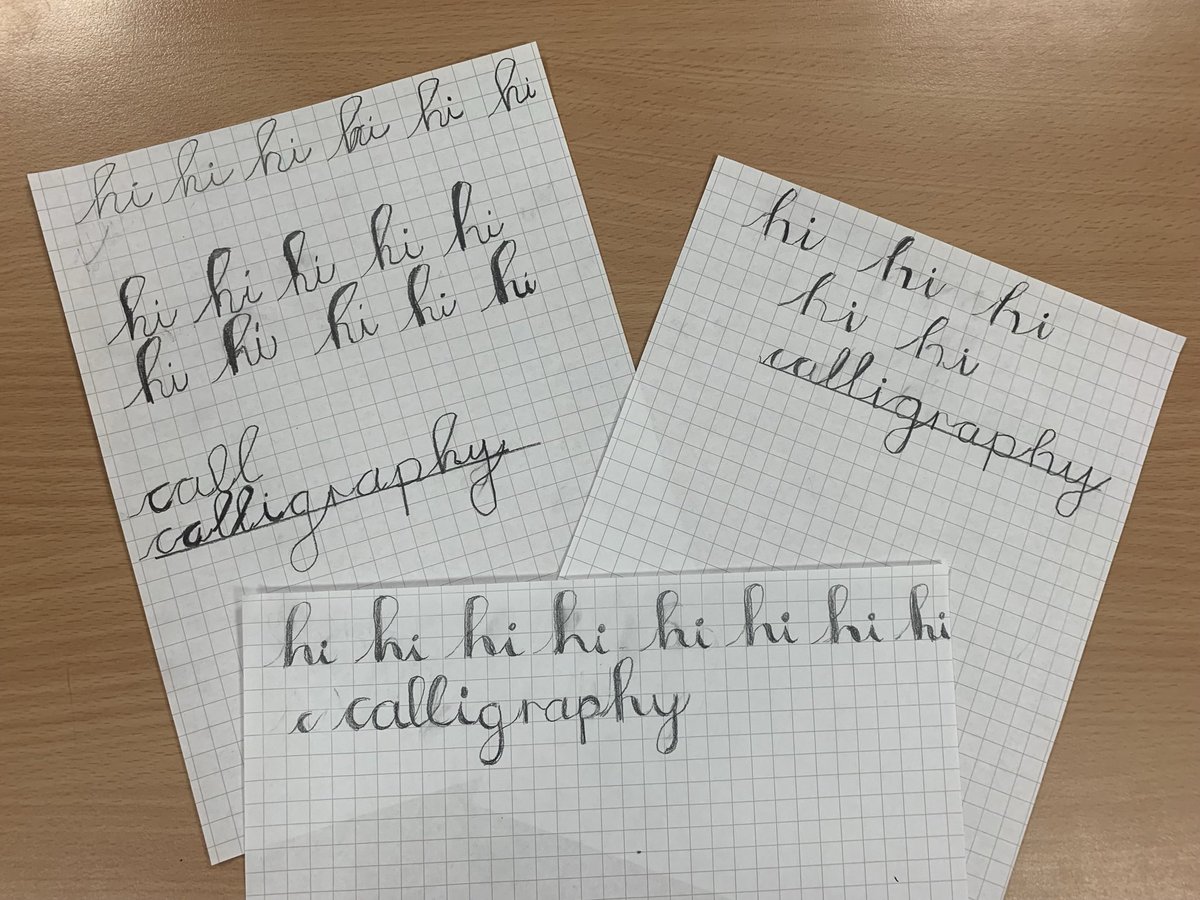 hi hi hi hi hi hi
hi hi hi hi hi
hi hi hi hi hi
call
calligraphy
hi hi hi
hi hi
calligraphy
hi hi hi hi hi hi hi hi
c calligraphy